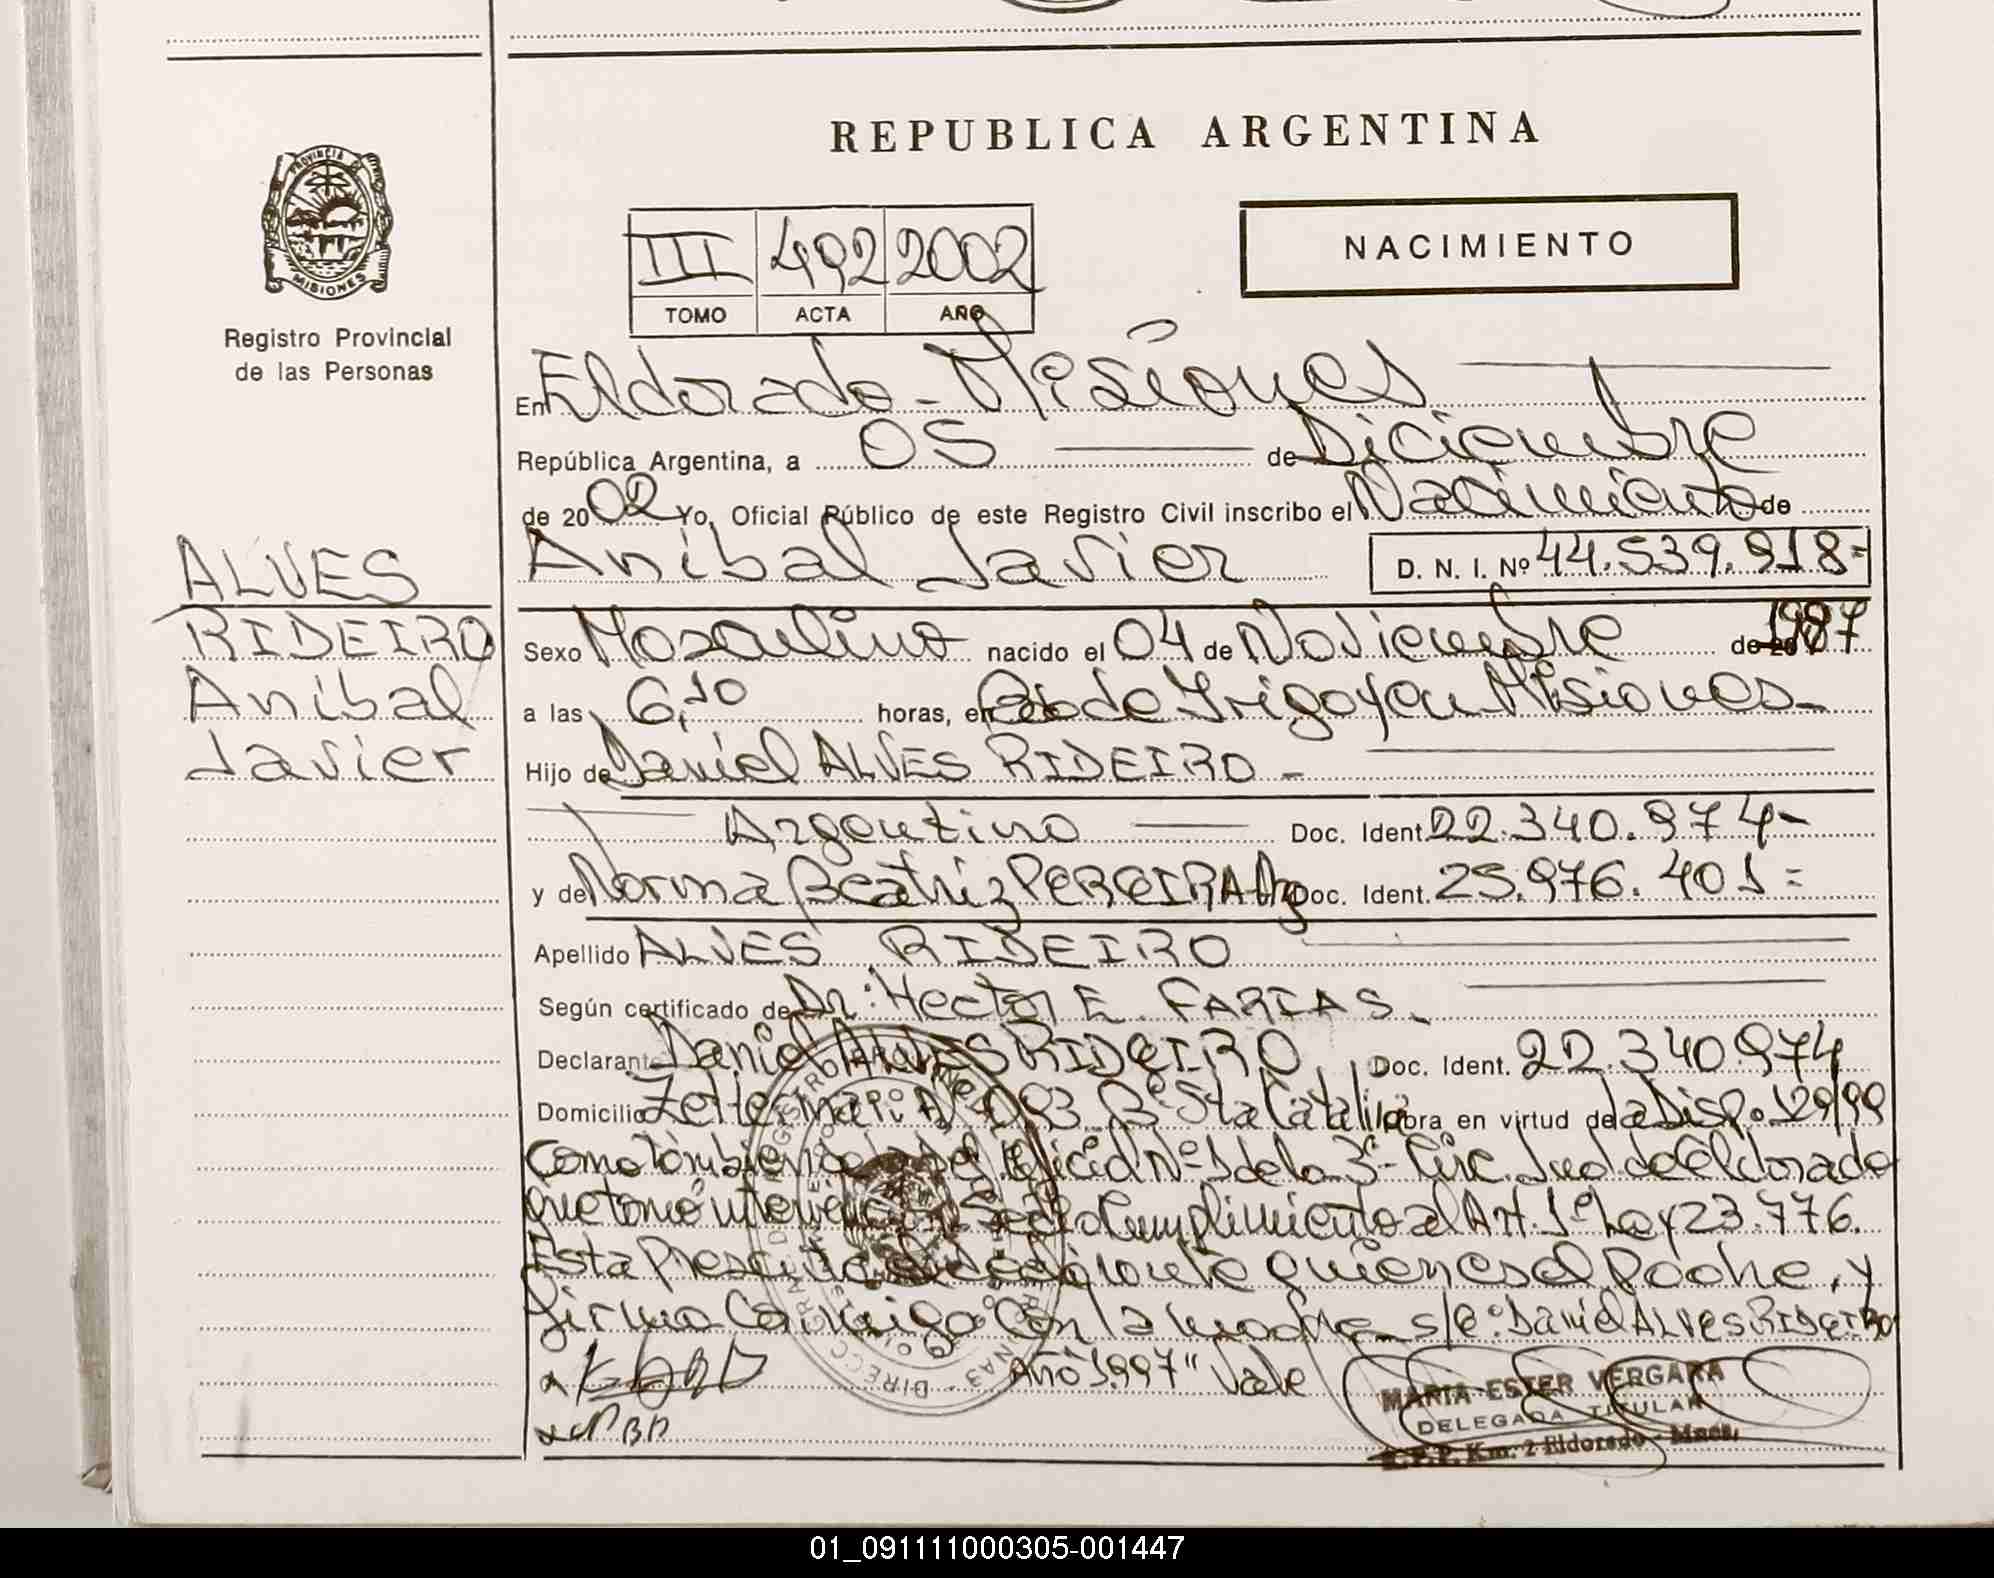 REPUBLICA ARGENTINA
PROVINCIA DE
MISIONES
Registro Provincial
de las Personas
NACIMIENTO
III 492 2002
TOMO ACTA AÑO
En Eldorado - Misiones
República Argentina, a 05 de Diciembre
de 2002 Yo, Oficial Público de este Registro Civil inscribo el Nacimiento de
Anibal Javier D. N. I. Nº 44.539.918=
ALVES
RIDEIRO
Anibal
Javier
Sexo Masculino nacido el 04 de Noviembre de 20
a las 6,10 horas, en Bdo de Irigoyen Misiones-
Hijo de Daniel ALVES RIDEIRO -
Argentino Doc. Ident. 22.340.974-
y de Norma Beatriz PEREIRA Arg Doc. Ident. 25.976.401=
Apellido ALVES RIDEIRO
Según certificado de Dr: Hector E. FARIAS.
Declarante Daniel ALVES RIDEIRO Doc. Ident. 22.340.974
Domicilio Nº Bº Sta Catalina obra en virtud de la Disp. 129/99
como también Nº 1 de la 3ª Circ. Jud. de Eldorado
que tomó Cumplimiento al Art. 1º Ley 23.776.
Esta quien es el Padre, y
firma Conmigo Con la madre s/e: Daniel ALVES RIDEIRO
Año 1.997" Vale
MARIA ESTER VERGARA
DELEGADA TITULAR
Km. 2 Eldorado - Mnes.
01_091111000305-001447